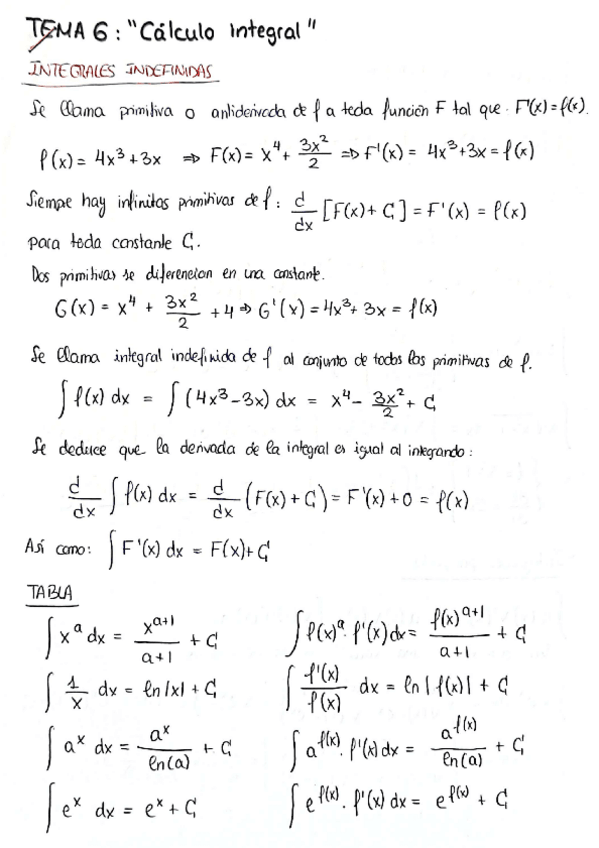 TEMA 6: "Cálculo integral"
INTEGRALES INDEFINIDAS
Se llama primitiva o antiderivada de f a toda función F tal que F'(x)=f(x).
f(x) = 4x³+3x ⇒ F(x) = x⁴ + 3x²/2 ⇒ F'(x) = 4x³+3x = f(x)
Siempre hay infinitas primitivas de f: d/dx [F(x)+C] = F'(x) = f(x)
para toda constante C.
Dos primitivas se diferencian en una constante.
G(x) = x⁴ + 3x²/2 + 4 ⇒ G'(x) = 4x³+3x = f(x)
Se llama integral indefinida de f al conjunto de todas las primitivas de f.
∫ f(x) dx = ∫ (4x³-3x) dx = x⁴ - 3x²/2 + C
Se deduce que la derivada de la integral es igual al integrando:
d/dx ∫ f(x) dx = d/dx (F(x)+C) = F'(x)+0 = f(x)
Así como: ∫ F'(x) dx = F(x)+C
TABLA
∫ xᵃ dx = xᵃ⁺¹/(a+1) + C    ∫ f(x)ᵃ · f'(x) dx = f(x)ᵃ⁺¹/(a+1) + C
∫ 1/x dx = ln|x| + C    ∫ f'(x)/f(x) dx = ln|f(x)| + C
∫ aˣ dx = aˣ/ln(a) + C    ∫ a^f(x) · f'(x) dx = a^f(x)/ln(a) + C
∫ eˣ dx = eˣ + C    ∫ e^f(x) · f'(x) dx = e^f(x) + C